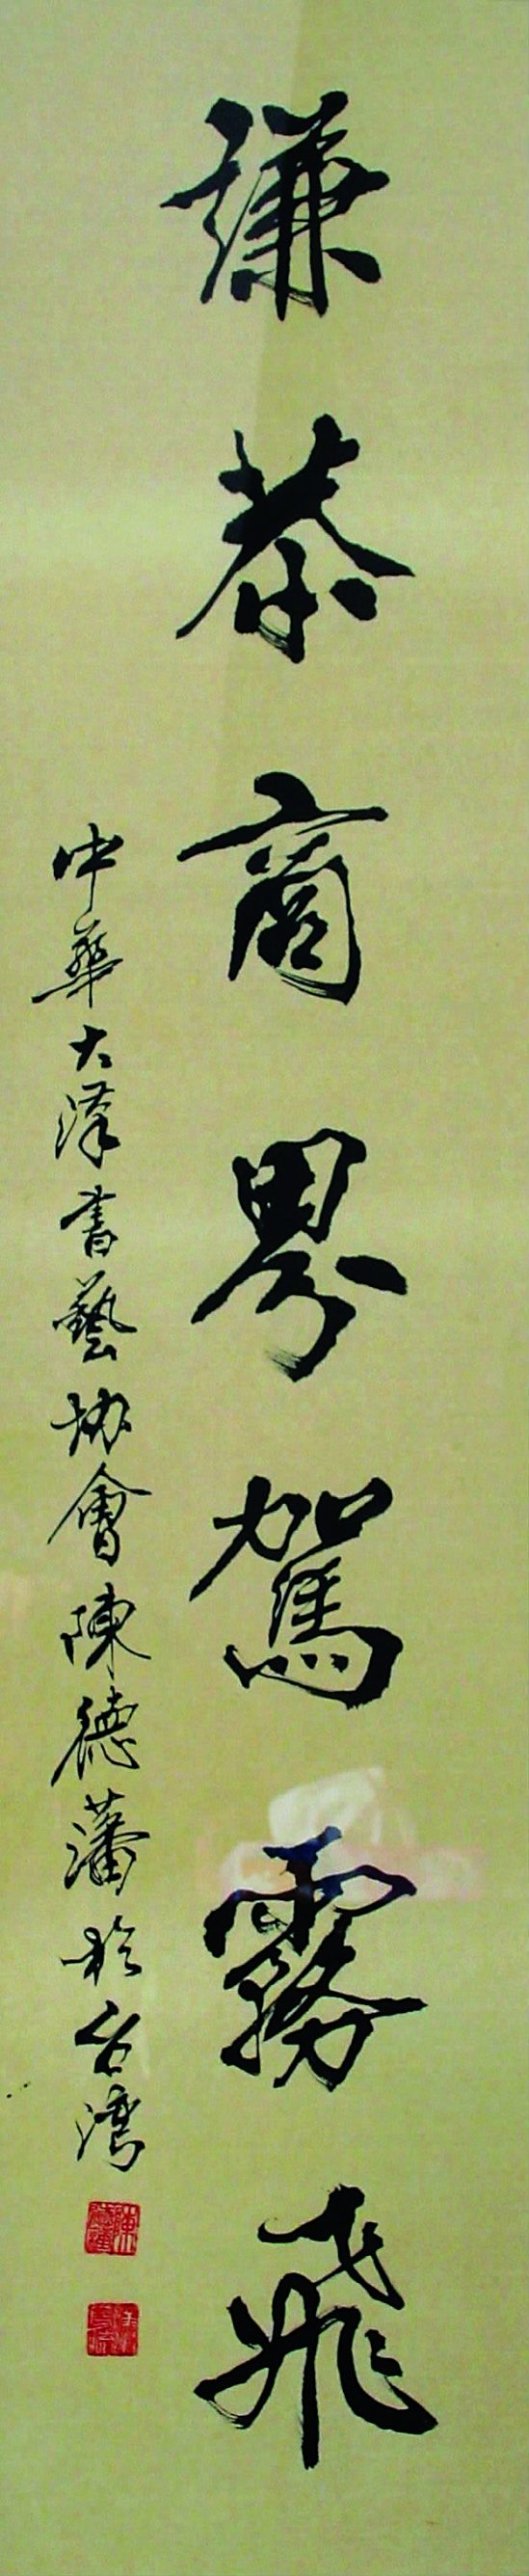 謙恭商界駕霧飛
中華大漢書藝協會陳德藩於台灣